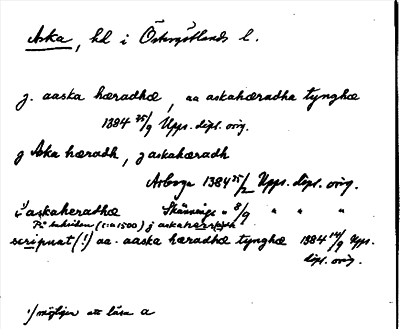 Aska, hd i Östergötlands l.
j. aaska hæradhæ, aa askahæradha tynghæ
1384 25/9 Upps. dipl. orig.
j Aska hæradh, j askahæradh
Arboga 1384 25/2 Upps. dipl. orig.
i¹⁾ askaheradhæ Skänninge " 8/9 " " "
På baksidan (c:a 1500) j askahæradh
scripnat (!) aa. aaska hæradhæ tynghæ 1384 14/9 Upps.
dipl. orig.
¹⁾ möjligen att läsa a